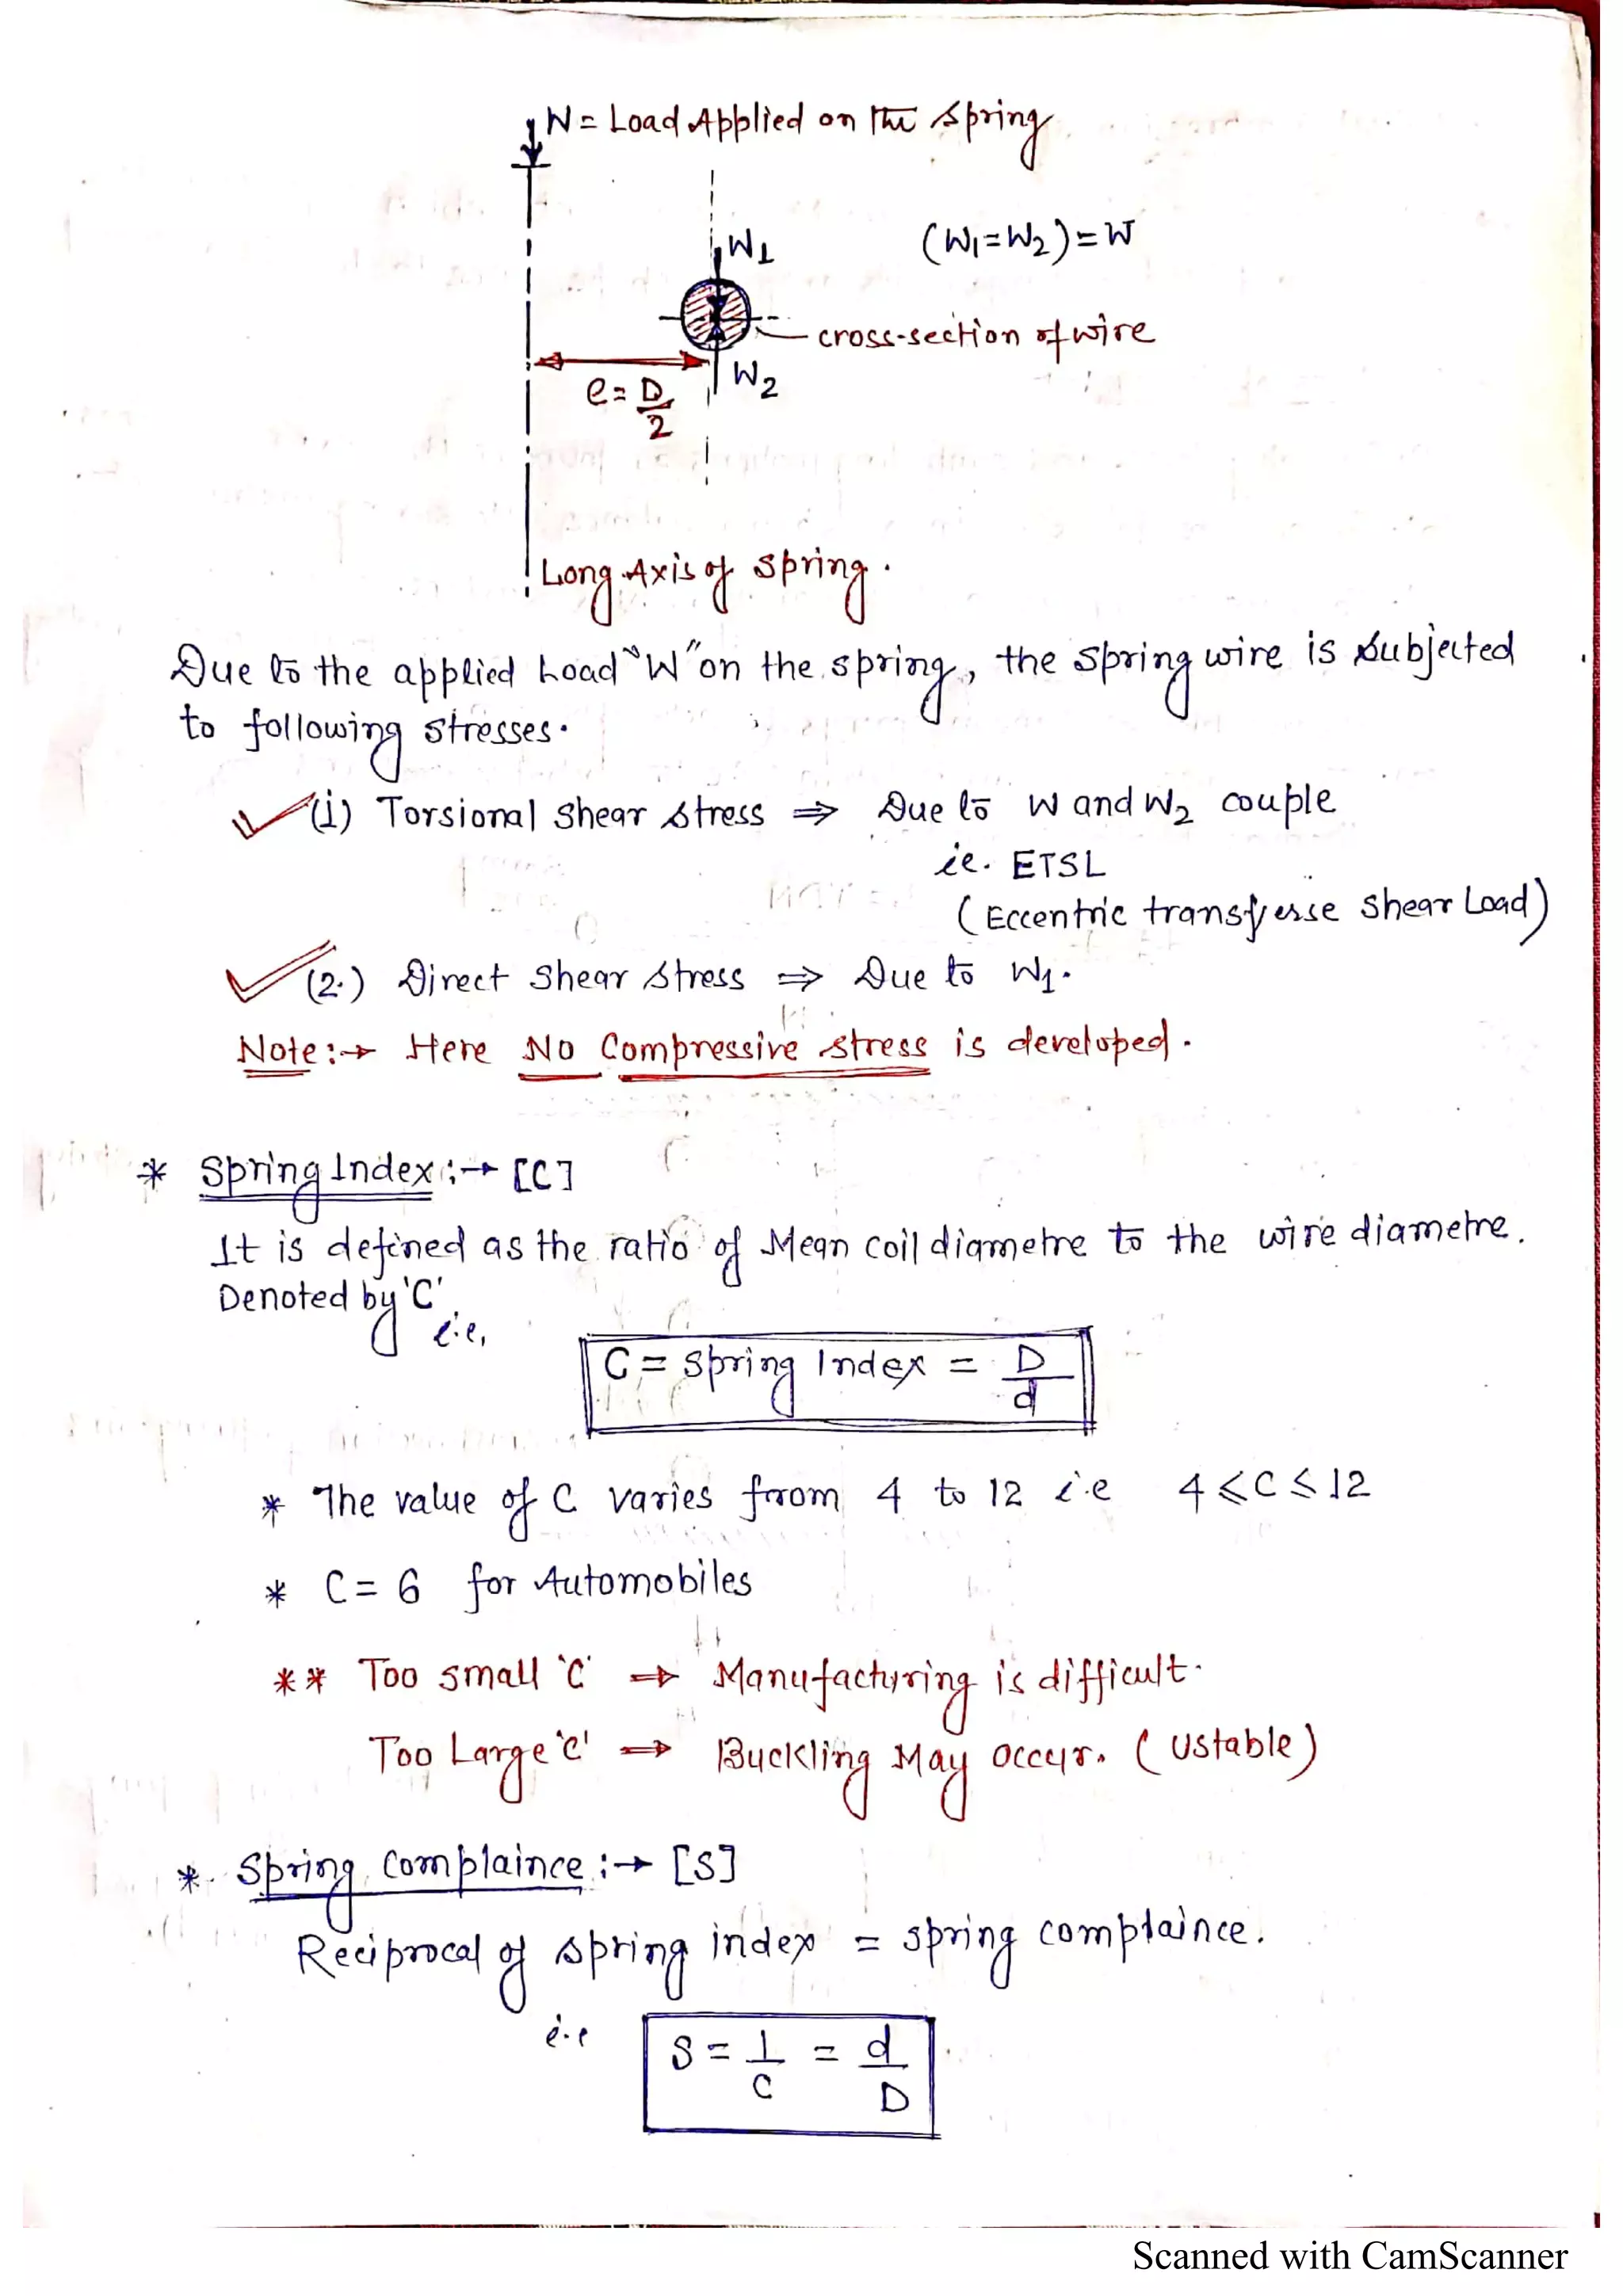 W = Load Applied on the spring
W1
(W1=W2)=W
cross-section of wire
W2
e = D/2
Long Axis of spring.
Due to the applied Load "W" on the spring, the spring wire is subjected
to following stresses.
(1) Torsional shear stress ⇒ Due to W and W2 couple
ie. ETSL
(Eccentric transverse shear Load)
(2.) Direct shear stress ⇒ Due to W1.
Note:→ Here No Compressive stress is developed.
* Spring Index:→ [C]
It is defined as the ratio of Mean coil diametre to the wire diametre.
Denoted by 'C'
i.e,
C = Spring Index = D/d
* The value of C varies from 4 to 12 i.e 4 ⩽ C ⩽ 12
* C = 6 for Automobiles
** Too small 'C' ⇒ Manufacturing is difficult.
Too Large 'C' ⇒ Buckling May occur. (Ustable)
* Spring complaince:→ [S]
Reciprocal of spring index = spring complaince.
i.e
S = 1/C = d/D
Scanned with CamScanner